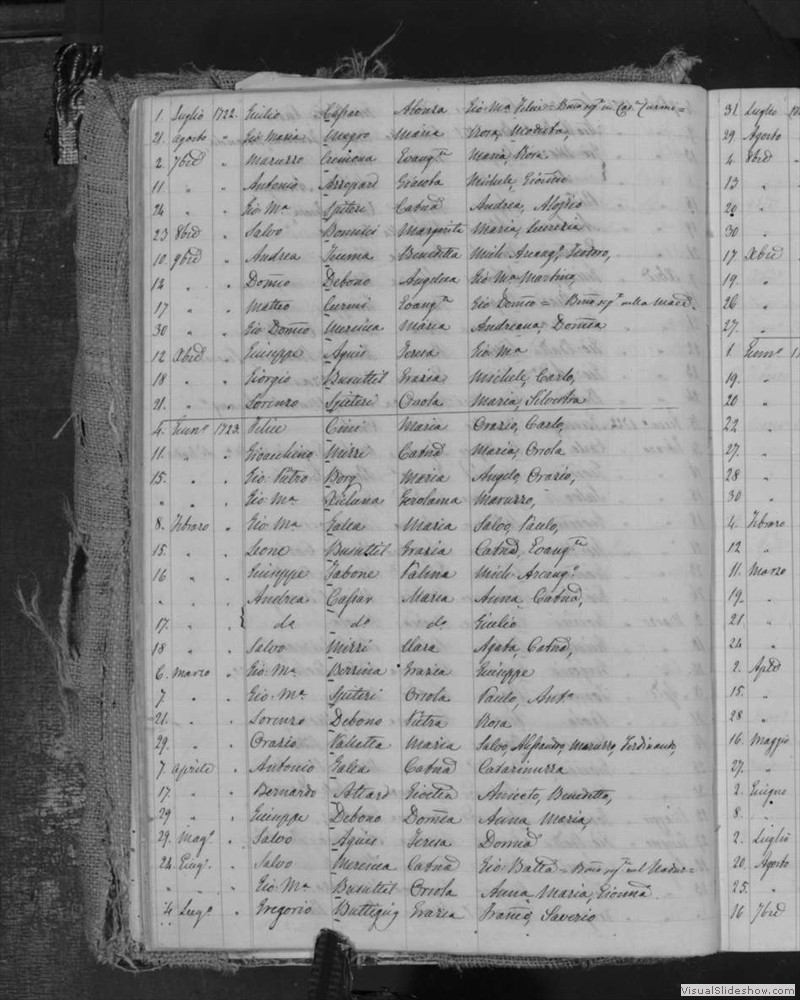 1. Luglio 1722. Giulio Caspar Alonza Gio Mª Felice =
21. Agosto " Gio Maria Magro Maria Rosa, Modesta,
2. 7bre " Maruzzo Cremona Evangta Maria Rosa
11. " " Antonio Azzopard Graziola Michele,
24 " " Gio Mª Spiteri Catnã Andrea, Aloysio
23 8bre " Salvo Bonnici Margarita Maria, Lucrezia
10. 9bre " Andrea Zamma Benedetta Miche Arcango, Teodoro,
12 " " Domco Debono Angelica Gio Mª Martino,
17 " " Matteo Curmi Evangta Gio Domco =
30 " " Gio Domco Mercieca Maria Andreana, Domca
12 Xbre " Giuseppe Agius Teresa Gio Mª
18 " " Giorgio Busuttil Grazia Michele, Carlo,
21. " " Lorenzo Spiteri Orsola Maria, Silvestra
4. Genno 1723. Felice Cini Maria Orazio, Carlo,
11. " " Gioacchino Mizzi Catnã Maria, Orsola
15. " " Gio Pietro Borg Maria Angelo, Orazio,
" " " Gio Mª Xicluna Gerolama Maruzzo,
8. Febraro " Gio Mª Galea Maria Salvo, Paulo,
15. " " Leone Busuttil Grazia Catnã, Evangta
16 " " Giuseppe Tabone Palma Miche Arcango
" " " Andrea Caspar Maria Anna Catnã,
17. " { do do do Giulio
18 " " Salvo Mizzi Clara Agata, Catnã,
6. Marzo " Gio Mª Grazia Giuseppe
7 " " Gio Mª Spiteri Orsola Paulo, Anto
21. " " Lorenzo Debono Pietra Rosa
29. " " Orazio Valletta Maria Salvo, Alessandro, Maruzzo, Ferdinando,
7. Aprile " Antonio Galea Catnã Catarinuzza
17 " " Bernardo Attard Aniceto, Benedetta,
29 " " Giuseppe Debono Domca Anna Maria,
29. Mago " Salvo Agius Teresa Domca
24. Giugo " Salvo Mercieca Catnã Gio Batta =
" " " Gio Mª Busuttil Orsola Anna Maria,
4 Lugo " Gregorio Buttigieg Grazia Franco, Saverio
31. Luglio
29. Agosto
4. 8bre
13 "
20 "
30 "
17 Xbre
19. "
26 "
27. "
1. Genno
19. "
20 "
22 "
27. "
28 "
30 "
4. Febraro
12 "
11. Marzo
19. "
21. "
24 "
2. Aple
15. "
28 "
16. Maggio
27. "
2. Giugno
8. "
2. Luglio
20. Agosto
25. "
16 7bre
VisualSlideshow.com